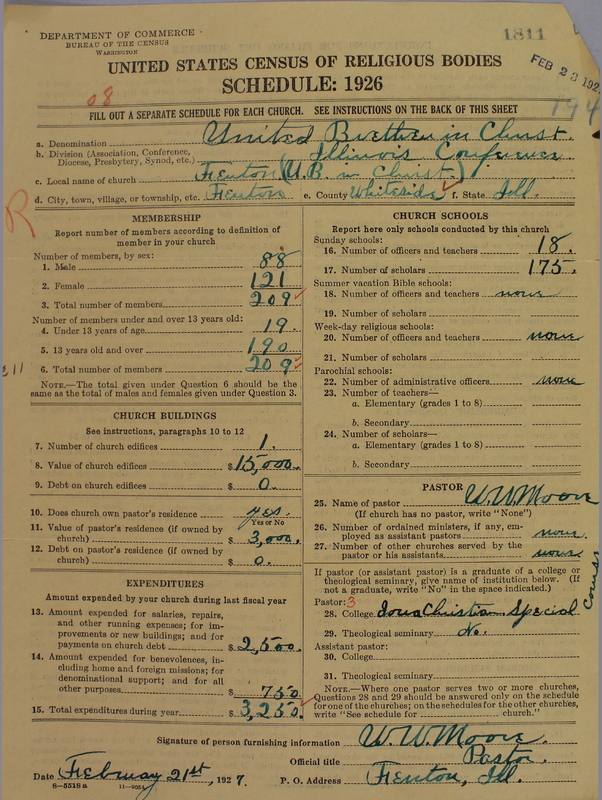 DEPARTMENT OF COMMERCE
BUREAU OF THE CENSUS
WASHINGTON
1811
FEB 23 192
UNITED STATES CENSUS OF RELIGIOUS BODIES
SCHEDULE: 1926
08
FILL OUT A SEPARATE SCHEDULE FOR EACH CHURCH. SEE INSTRUCTIONS ON THE BACK OF THIS SHEET
194
a. Denomination United Brethren in Christ.
b. Division (Association, Conference, Diocese, Presbytery, Synod, etc.) Illinois Conference
c. Local name of church Fenton (U.B. in Christ.)
d. City, town, village, or township, etc. Fenton e. County Whiteside f. State Ill.
R
MEMBERSHIP
Report number of members according to definition of
member in your church
Number of members, by sex:
1. Male 88
2. Female 121
3. Total number of members 209
Number of members under and over 13 years old:
4. Under 13 years of age 19.
5. 13 years old and over 190
6. Total number of members 209
NOTE.—The total given under Question 6 should be the
same as the total of males and females given under Question 3.
CHURCH BUILDINGS
See instructions, paragraphs 10 to 12
7. Number of church edifices 1.
8. Value of church edifices $15,000.
9. Debt on church edifices $ 0.
10. Does church own pastor's residence? yes.
Yes or No
11. Value of pastor's residence (if owned by
church) $ 3,000.
12. Debt on pastor's residence (if owned by
church) $ 0.
EXPENDITURES
Amount expended by your church during last fiscal year
13. Amount expended for salaries, repairs,
and other running expenses; for im-
provements or new buildings; and for
payments on church debt $2,500.
14. Amount expended for benevolences, in-
cluding home and foreign missions; for
denominational support; and for all
other purposes $ 750
15. Total expenditures during year $3,250.
CHURCH SCHOOLS
Report here only schools conducted by this church
Sunday schools:
16. Number of officers and teachers 18.
17. Number of scholars 175.
Summer vacation Bible schools:
18. Number of officers and teachers none
19. Number of scholars
Week-day religious schools:
20. Number of officers and teachers none
21. Number of scholars
Parochial schools:
22. Number of administrative officers none
23. Number of teachers—
a. Elementary (grades 1 to 8)
b. Secondary
24. Number of scholars—
a. Elementary (grades 1 to 8)
b. Secondary
PASTOR
25. Name of pastor W.W. Moore
(If church has no pastor, write "None")
26. Number of ordained ministers, if any, em-
ployed as assistant pastors none.
27. Number of other churches served by the
pastor or his assistants none
If pastor (or assistant pastor) is a graduate of a college or
theological seminary, give name of institution below. (If
not a graduate, write "No" in the space indicated.)
Pastor: 3
28. College Iowa Christian Special course
29. Theological seminary No.
Assistant pastor:
30. College
31. Theological seminary
NOTE.—Where one pastor serves two or more churches,
Questions 28 and 29 should be answered only on the schedule
for one of the churches; on the schedules for the other churches,
write "See schedule for ______ church."
Signature of person furnishing information W. W. Moore.
Official title Pastor.
Date February 21st, 1927. P. O. Address Fenton, Ill.
8—5518a 11—9054